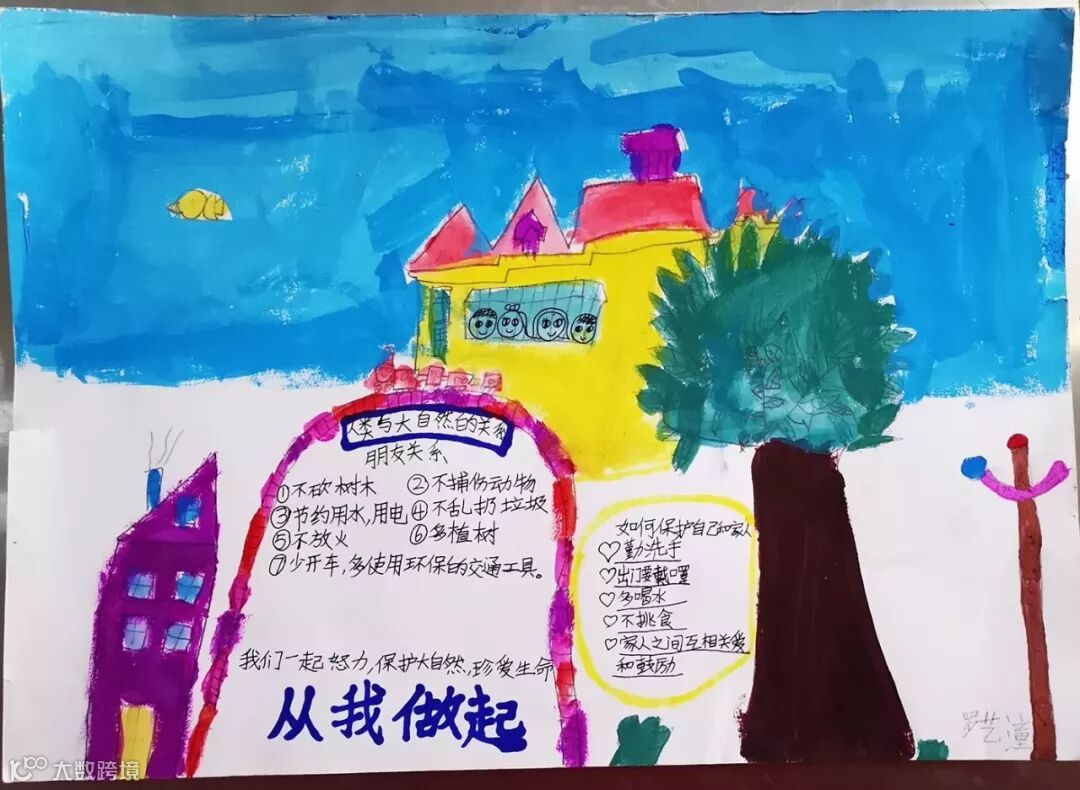 人类与大自然的关系
朋友关系
①不砍树木 ②不捕伤动物
③节约用水,用电 ④不乱扔垃圾
⑤不放火 ⑥多植树
⑦少开车,多使用环保的交通工具。
我们一起努力,保护大自然,珍爱生命
从我做起
如何保护自己和家人
♡勤洗手
♡出门要戴口罩
♡多喝水
♡不挑食
♡家人之间互相关爱
和鼓励
艺潼
大数跨境